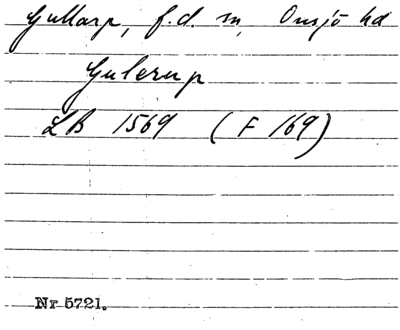 Gullarp, f.d. sn, Onsjö hd
Gulerup
LB 1569 (F 169)
Nr 5721.